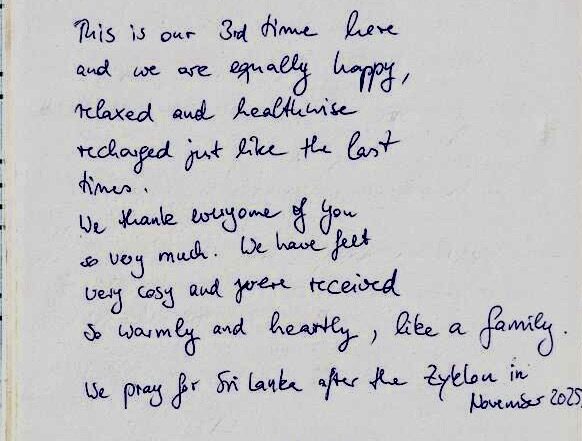 This is our 3rd time here
and we are equally happy,
relaxed and healthwise
recharged just like the last
times.
We thank everyone of you
so very much. We have felt
very cosy and were received
so warmly and heartly, like a family.
We pray for Sri Lanka after the Zyklon in
November 2025